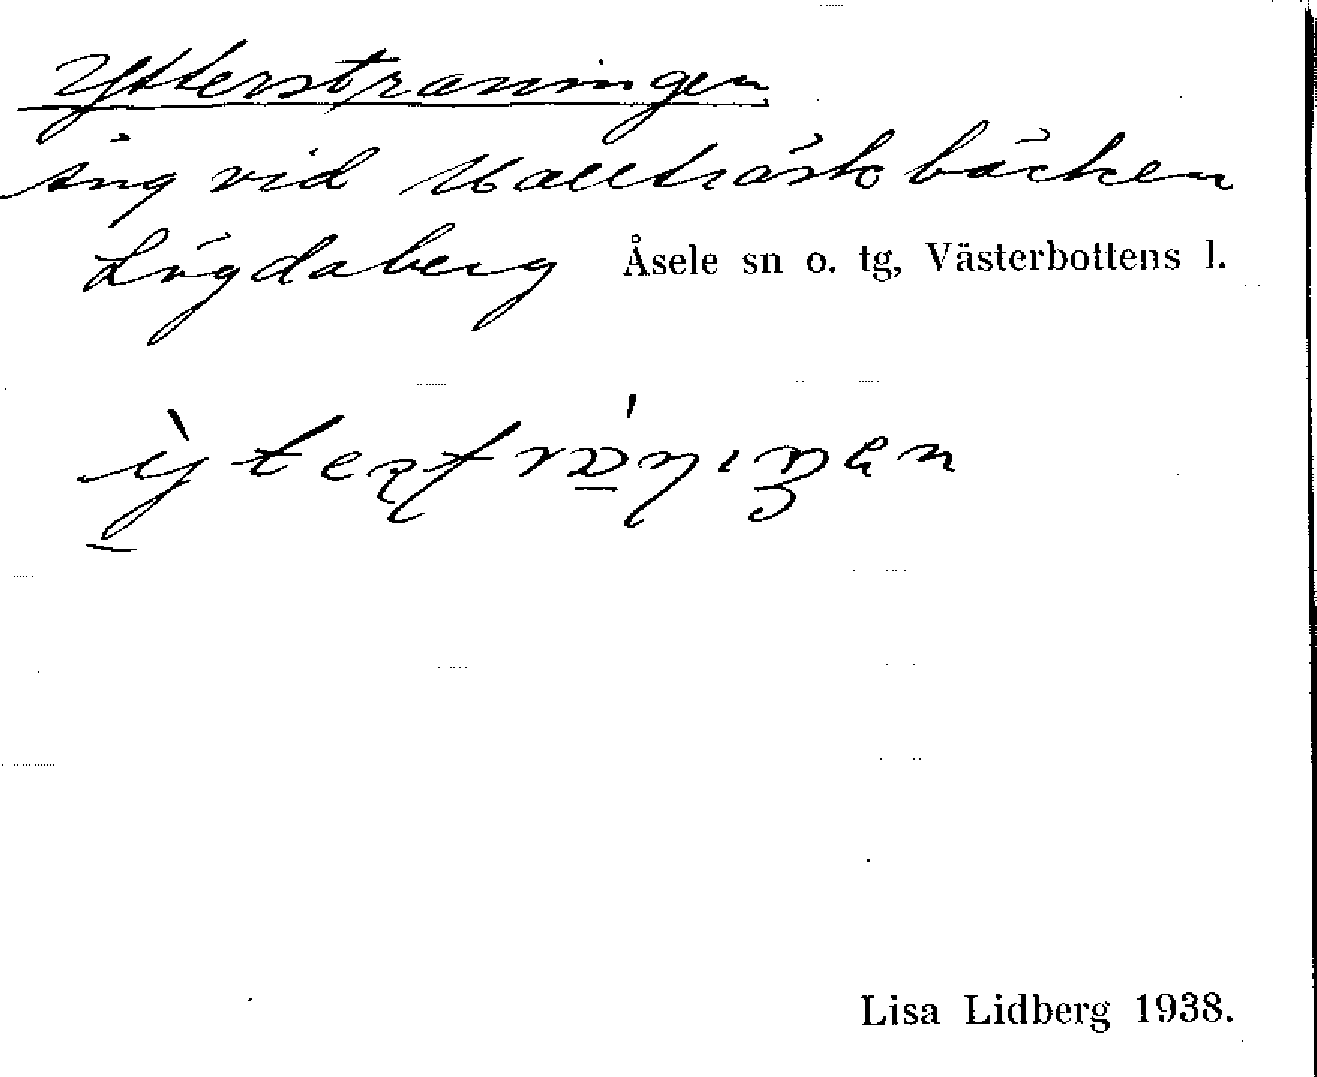 Ytterstraningen
äng vid Vallträskbäcken
Lögdaberg Åsele sn o. tg, Västerbottens l.
Lisa Lidberg 1938.